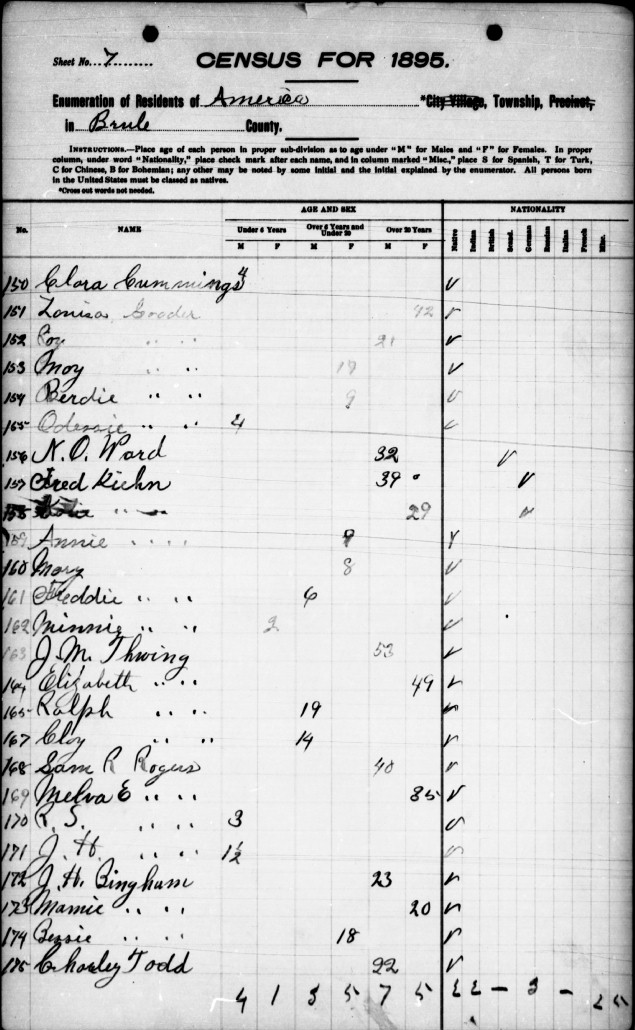 Sheet No. 7
CENSUS FOR 1895.
Enumeration of Residents of America *City Village, Township, Precinct,
in Brule County.
INSTRUCTIONS.—Place age of each person in proper sub-division as to age under "M" for Males and "F" for Females. In proper
column, under word "Nationality," place check mark after each name, and in column marked "Misc.," place S for Spanish, T for Turk,
C for Chinese, B for Bohemian; any other may be noted by some initial and the initial explained by the enumerator. All persons born
in the United States must be classed as natives.
*Cross out words not needed.
AGE AND SEX NATIONALITY
No. NAME Under 6 Years Over 6 Years and Under 20 Over 20 Years Native Indian British Scand. German Russian Italian French Mis.
M F M F M F
150 Clara Cummings 4 ✓
151 Louisa 42 ✓
152 Roy " " 21 ✓
153 Moy " " 17 ✓
154 Berdie " " 9 ✓
155 Odessie " " 4 ✓
156 N. O. Ward 32 ✓
157 Fred Kiehn 39 ✓
158 " " 29 ✓
159 Annie " " 9 ✓
160 Mary 8 ✓
161 Freddie " " 6 ✓
162 Minnie " " 2 ✓
163 J. M. Thwing 53 ✓
164 Elizabeth " " 49 ✓
165 Ralph " " 19 ✓
167 Cloy " " 14 ✓
168 Sam R Rogers 40 ✓
169 Melva E " " 35 ✓
170 R. S. " " 3 ✓
171 J. H. " " 1½ ✓
172 J. H. Bingham 23 ✓
173 Mamie " " 20 ✓
174 Bessie " " 18 ✓
175 Charley Todd 22 ✓
4 1 3 5 7 5 22 — 3 — 25